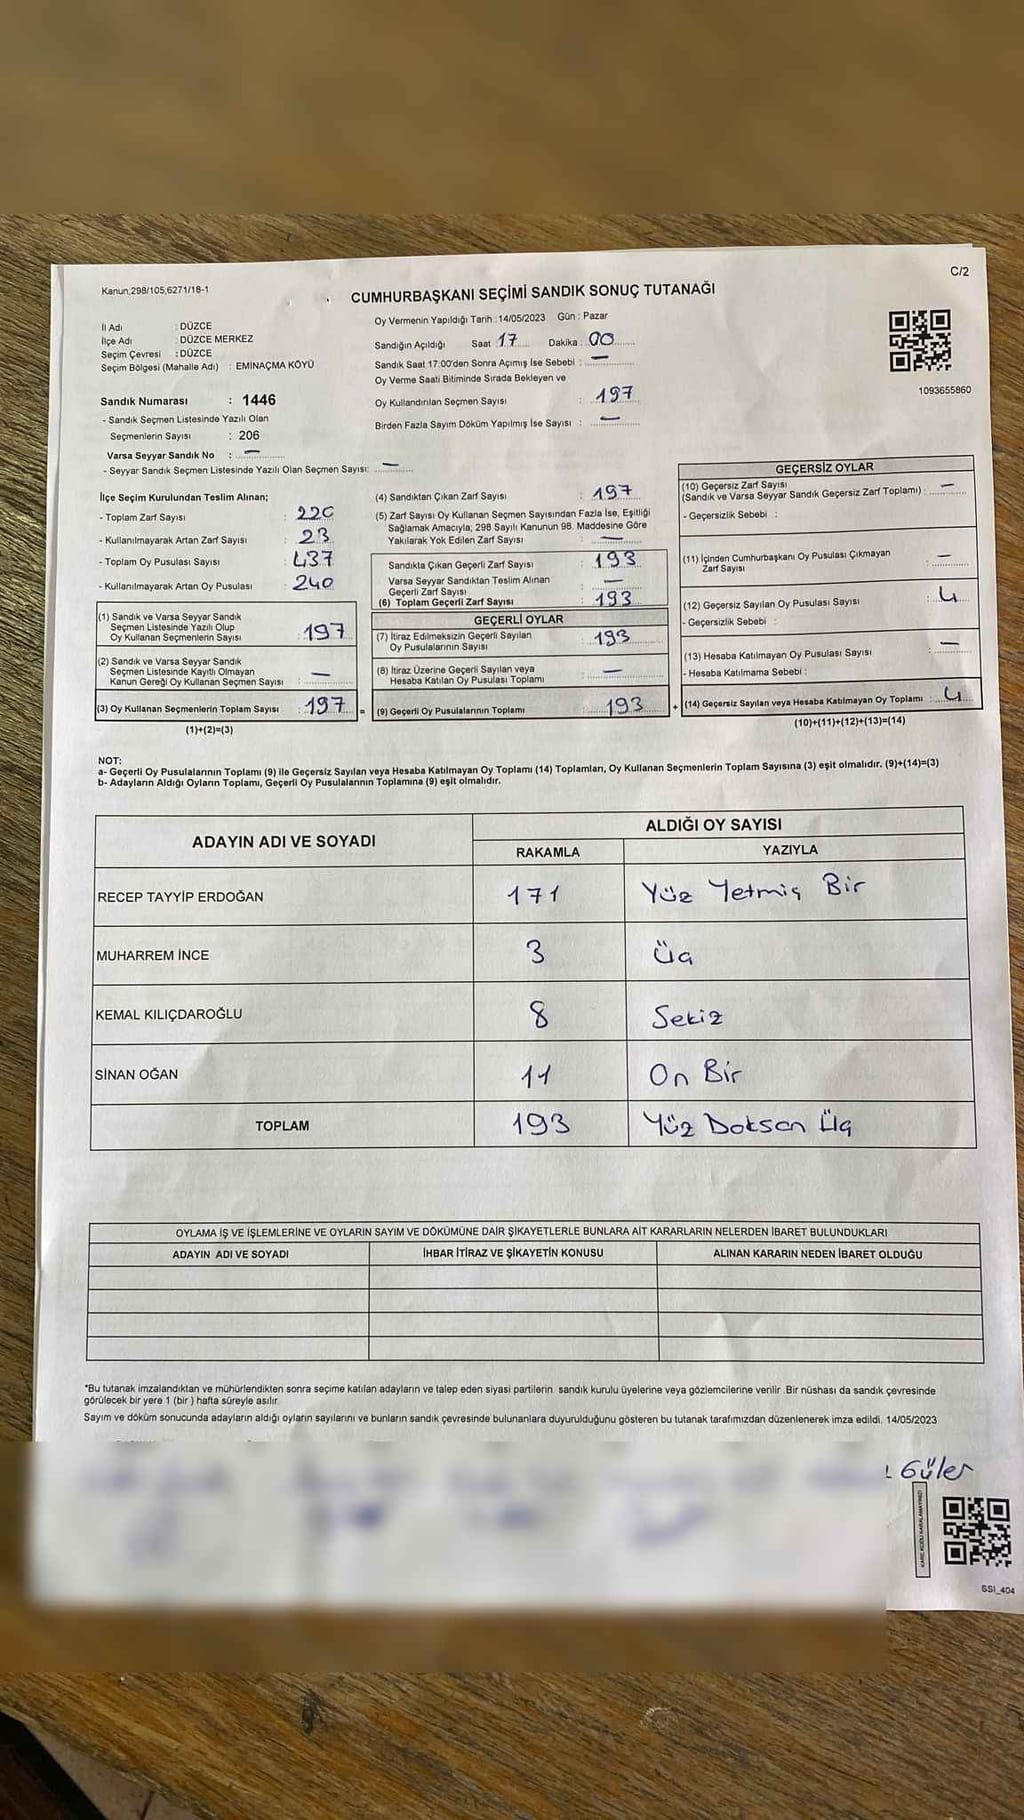 Kanun;298/105;6271/18-1
C/2
CUMHURBAŞKANI SEÇİMİ SANDIK SONUÇ TUTANAĞI
İl Adı : DÜZCE
İlçe Adı : DÜZCE MERKEZ
Seçim Çevresi : DÜZCE
Seçim Bölgesi (Mahalle Adı) : EMİNAÇMA KÖYÜ
Sandık Numarası : 1446
- Sandık Seçmen Listesinde Yazılı Olan
Seçmenlerin Sayısı : 206
Varsa Seyyar Sandık No : —
- Seyyar Sandık Seçmen Listesinde Yazılı Olan Seçmen Sayısı: —
Oy Vermenin Yapıldığı Tarih : 14/05/2023 Gün : Pazar
Sandığın Açıldığı Saat 17 Dakika : 00
Sandık Saat 17:00'den Sonra Açımış İse Sebebi : —
Oy Verme Saati Bitiminde Sırada Bekleyen ve
Oy Kullandırılan Seçmen Sayısı : 197
Birden Fazla Sayım Döküm Yapılmış İse Sayısı : —
1093655860
İlçe Seçim Kurulundan Teslim Alınan;
- Toplam Zarf Sayısı : 220
- Kullanılmayarak Artan Zarf Sayısı : 23
- Toplam Oy Pusulası Sayısı : 437
- Kullanılmayarak Artan Oy Pusulası : 240
(1) Sandık ve Varsa Seyyar Sandık
Seçmen Listesinde Yazılı Olup
Oy Kullanan Seçmenlerin Sayısı : 197
(2) Sandık ve Varsa Seyyar Sandık
Seçmen Listesinde Kayıtlı Olmayan
Kanun Gereği Oy Kullanan Seçmen Sayısı : —
(3) Oy Kullanan Seçmenlerin Toplam Sayısı : 197 =
(1)+(2)=(3)
(4) Sandıktan Çıkan Zarf Sayısı : 197
(5) Zarf Sayısı Oy Kullanan Seçmen Sayısından Fazla İse, Eşitliği
Sağlamak Amacıyla; 298 Sayılı Kanunun 98. Maddesine Göre
Yakılarak Yok Edilen Zarf Sayısı : —
Sandıkta Çıkan Geçerli Zarf Sayısı : 193
Varsa Seyyar Sandıktan Teslim Alınan
Geçerli Zarf Sayısı : —
(6) Toplam Geçerli Zarf Sayısı : 193
GEÇERLİ OYLAR
(7) İtiraz Edilmeksizin Geçerli Sayılan
Oy Pusulalarının Sayısı : 193
(8) İtiraz Üzerine Geçerli Sayılan veya
Hesaba Katılan Oy Pusulası Toplamı : —
(9) Geçerli Oy Pusulalarının Toplamı : 193 +
GEÇERSİZ OYLAR
(10) Geçersiz Zarf Sayısı
(Sandık ve Varsa Seyyar Sandık Geçersiz Zarf Toplamı) : —
- Geçersizlik Sebebi :
(11) İçinden Cumhurbaşkanı Oy Pusulası Çıkmayan
Zarf Sayısı : —
(12) Geçersiz Sayılan Oy Pusulası Sayısı : 4
- Geçersizlik Sebebi :
(13) Hesaba Katılmayan Oy Pusulası Sayısı : —
- Hesaba Katılmama Sebebi :
(14) Geçersiz Sayılan veya Hesaba Katılmayan Oy Toplamı : 4
(10)+(11)+(12)+(13)=(14)
NOT:
a- Geçerli Oy Pusulalarının Toplamı (9) ile Geçersiz Sayılan veya Hesaba Katılmayan Oy Toplamı (14) Toplamları, Oy Kullanan Seçmenlerin Toplam Sayısına (3) eşit olmalıdır. (9)+(14)=(3)
b- Adayların Aldığı Oyların Toplamı, Geçerli Oy Pusulalarının Toplamına (9) eşit olmalıdır.
ADAYIN ADI VE SOYADI ALDIĞI OY SAYISI
RAKAMLA YAZIYLA
RECEP TAYYİP ERDOĞAN 171 Yüz Yetmiş Bir
MUHARREM İNCE 3 Üç
KEMAL KILIÇDAROĞLU 8 Sekiz
SİNAN OĞAN 11 On Bir
TOPLAM 193 Yüz Doksan Üç
OYLAMA İŞ VE İŞLEMLERİNE VE OYLARIN SAYIM VE DÖKÜMÜNE DAİR ŞİKAYETLERLE BUNLARA AİT KARARLARIN NELERDEN İBARET BULUNDUKLARI
ADAYIN ADI VE SOYADI İHBAR İTİRAZ VE ŞİKAYETİN KONUSU ALINAN KARARIN NEDEN İBARET OLDUĞU
*Bu tutanak imzalandıktan ve mühürlendikten sonra seçime katılan adayların ve talep eden siyasi partilerin sandık kurulu üyelerine veya gözlemcilerine verilir .Bir nüshası da sandık çevresinde
görülecek bir yere 1 (bir ) hafta süreyle asılır.
Sayım ve döküm sonucunda adayların aldığı oyların sayılarını ve bunların sandık çevresinde bulunanlara duyurulduğunu gösteren bu tutanak tarafımızdan düzenlenerek imza edildi. 14/05/2023
Güler
KARE KODU KARALAMAYINIZ!
SSI_404